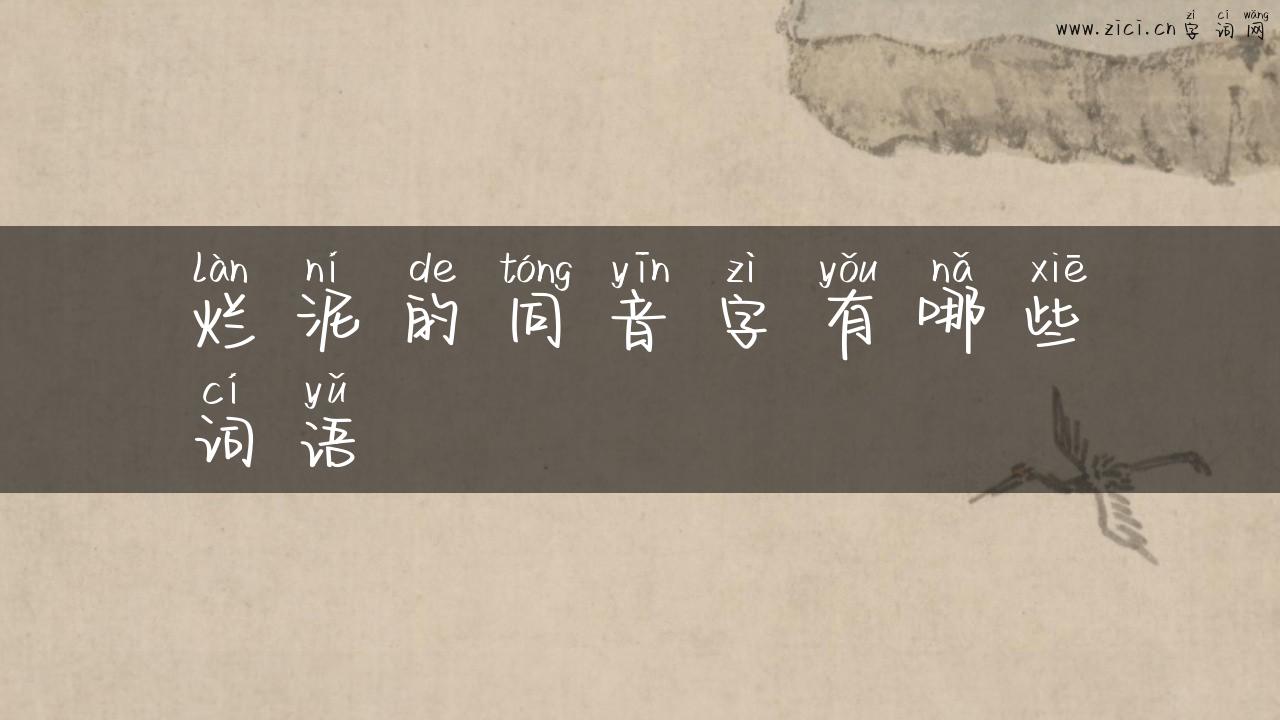 zì cí wǎng
www.zici.cn 字词网
làn ní de tóng yīn zì yǒu nǎ xiē
烂泥的同音字有哪些
cí yǔ
词语